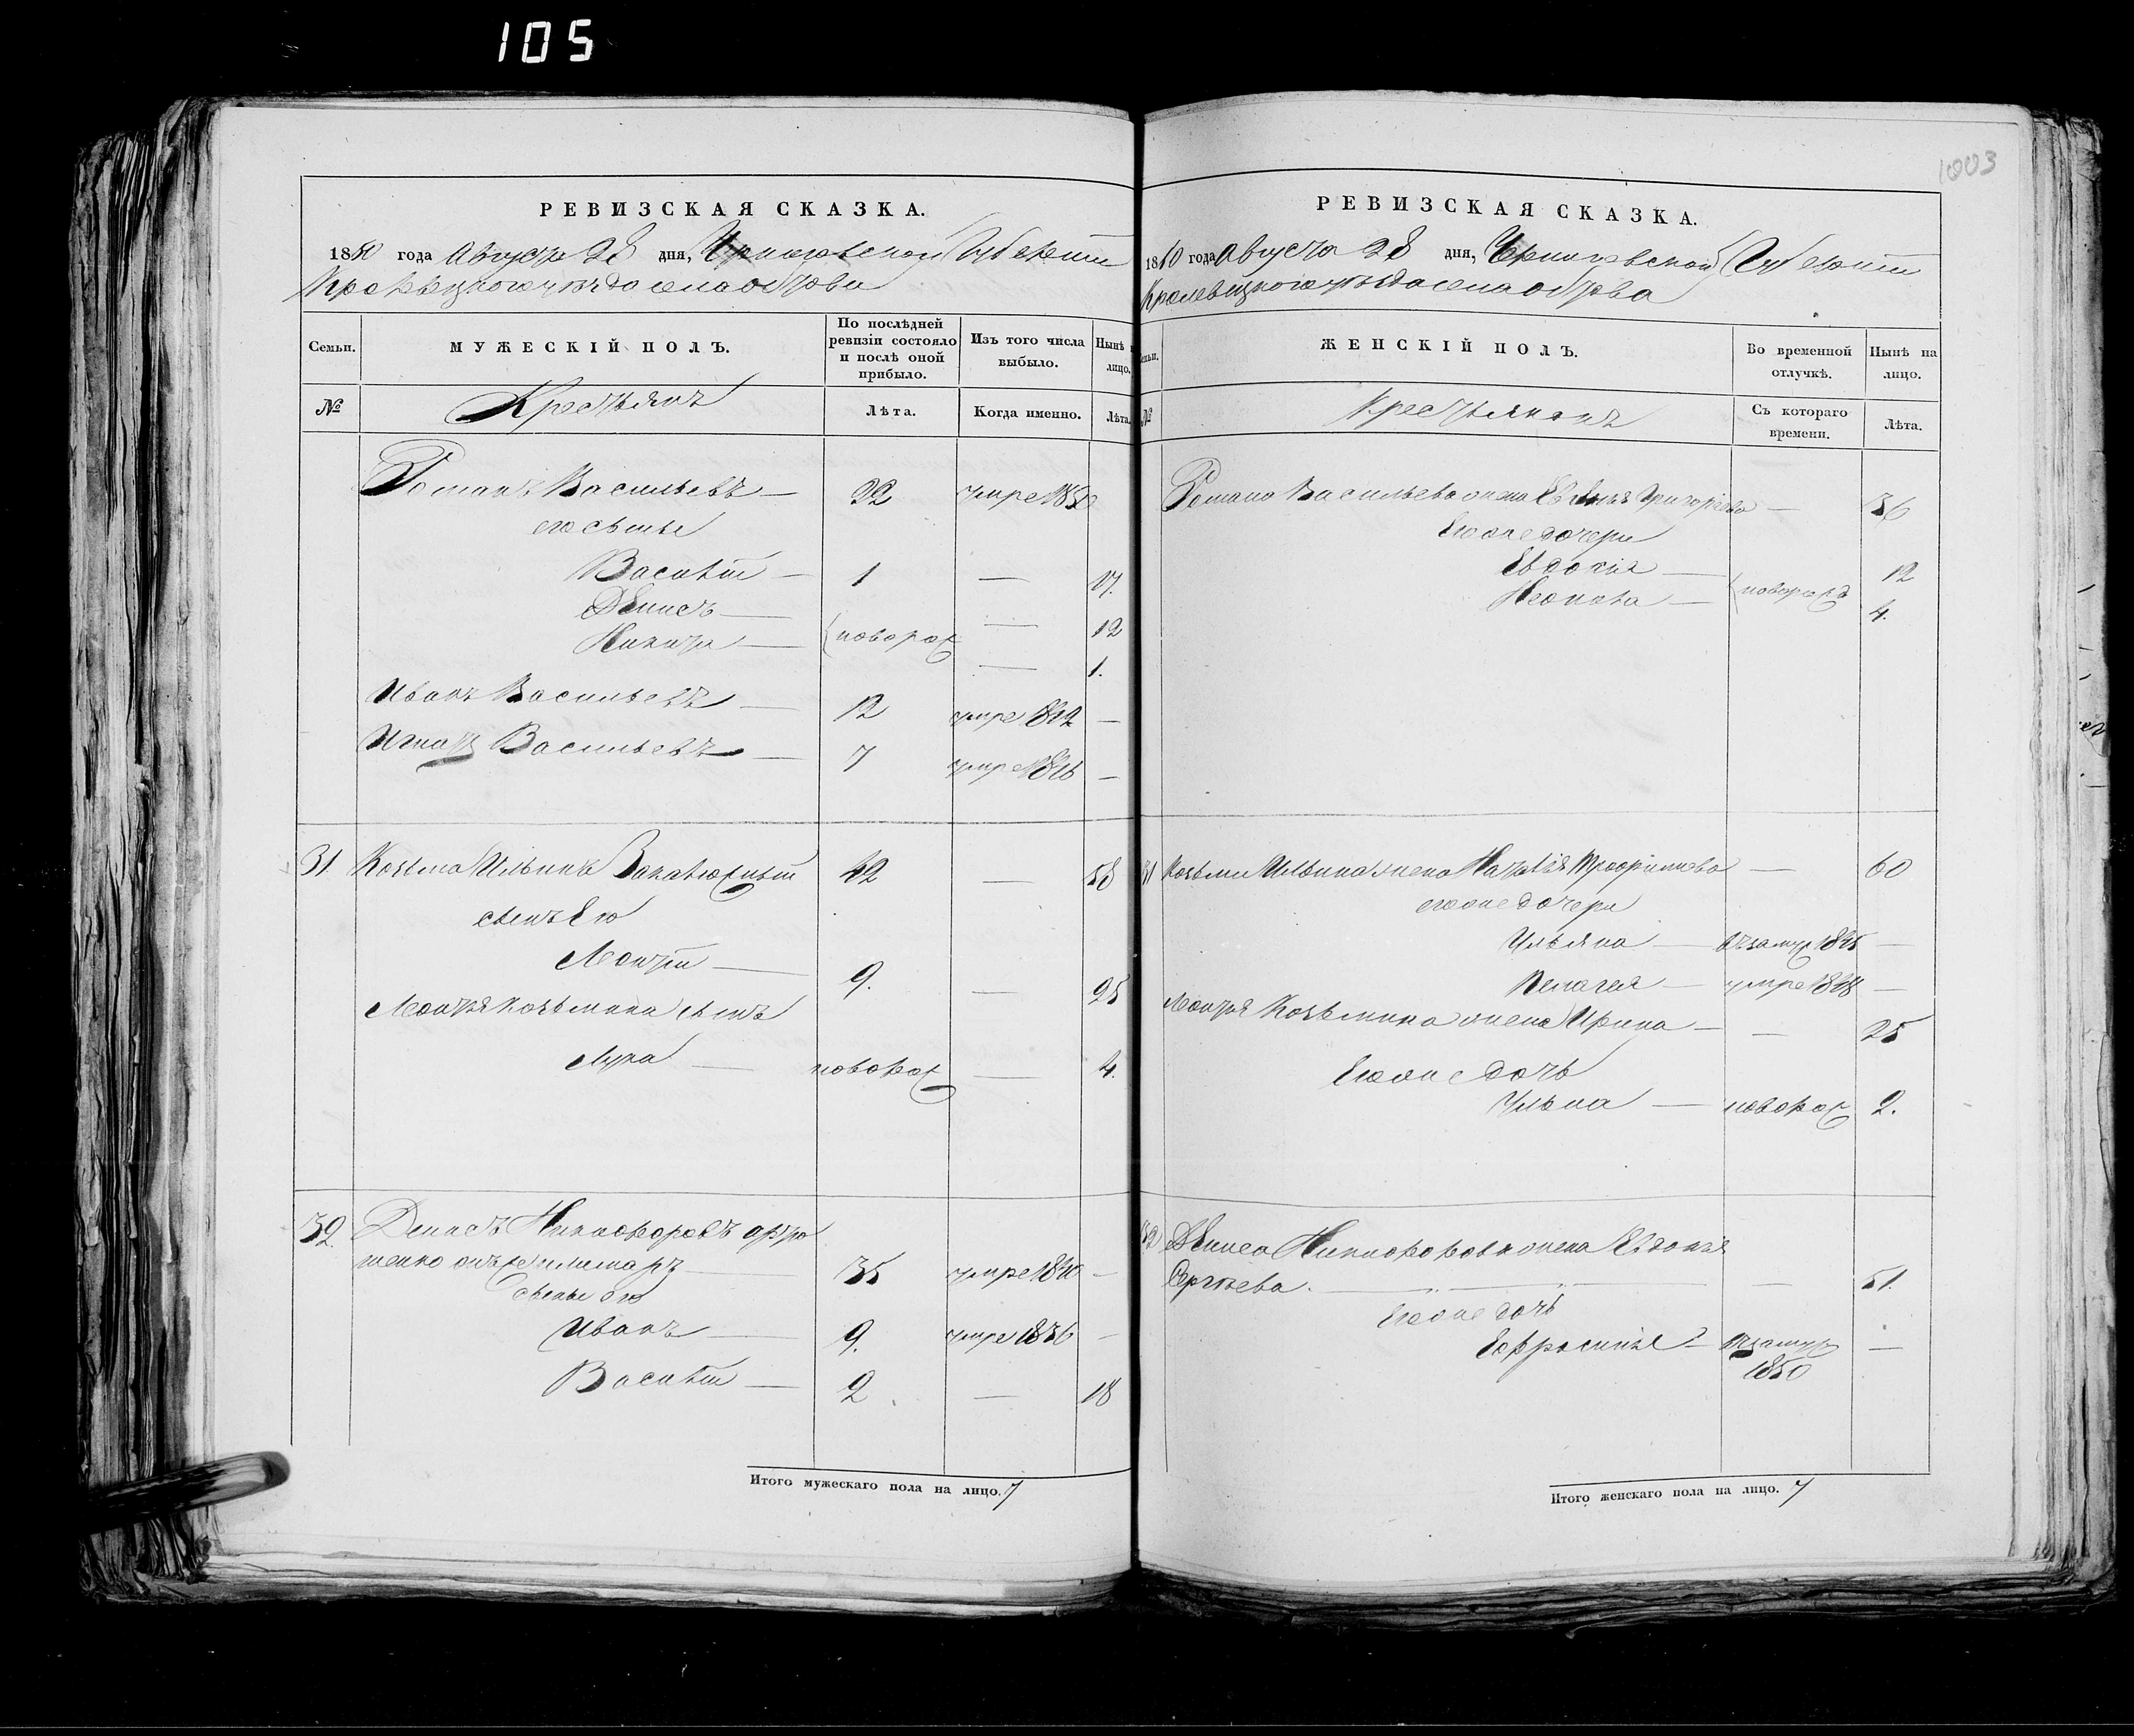 105
1003
РЕВИЗСКАЯ СКАЗКА.
1850 года Августа 28 дня, Черниговской Губерніи
Кролевецкого уѣзда села Острова
Семьи. МУЖЕСКІЙ ПОЛЪ. По послѣдней ревизіи состояло и послѣ оной прибыло. Изъ того числа выбыло. Нынѣ лицо.
№ Крестьянъ Лѣта. Когда именно. Лѣта.
Романъ Васильевъ — 22 умре 1850
его сыны
Василій — 1 — 17.
Денисъ — 12
Никита — новорож — 1.
Иванъ Васильевъ — 12 умре 1842 —
Игнатъ Васильевъ — 7 умре —
31. Козьма Ильинъ 42 — 58
сынъ Его
Леонтій — 9. — 25
Леонтія Козьмина сынъ
Лука — новорож — 4.
32. Денисъ Никифоровъ
35 умре 1840 —
сыны Его
Иванъ — 9. умре 1836 —
Василій — 2 — 18
Итого мужескаго пола на лицо. 7
РЕВИЗСКАЯ СКАЗКА.
1850 года Августа 28 дня, Черниговской Губерніи
Кролевецкого уѣзда села Острова
Семьи. ЖЕНСКІЙ ПОЛЪ. Во временной отлучкѣ. Нынѣ на лицо.
№ Крестьянокъ Съ котораго времени. Лѣта.
Романа Васильева жена Григорьева — 36
Его же дочери
Евдокія — 12
новорожд 4.
31 Козьмы Ильина жена Наталія Трофимова — 60
его же дочери
Ульяна — взамуж 1845 —
Пелагея — умре —
Леонтія Козьмина жена Ирина — — 25
Его же дочь
Ульяна — новорож 2.
32 Дениса Никифорова жена Евдокія
Сергѣева. — 51.
Его же дочь
Ефросинія — взамуж —
1850
Итого женскаго пола на лицо. 7